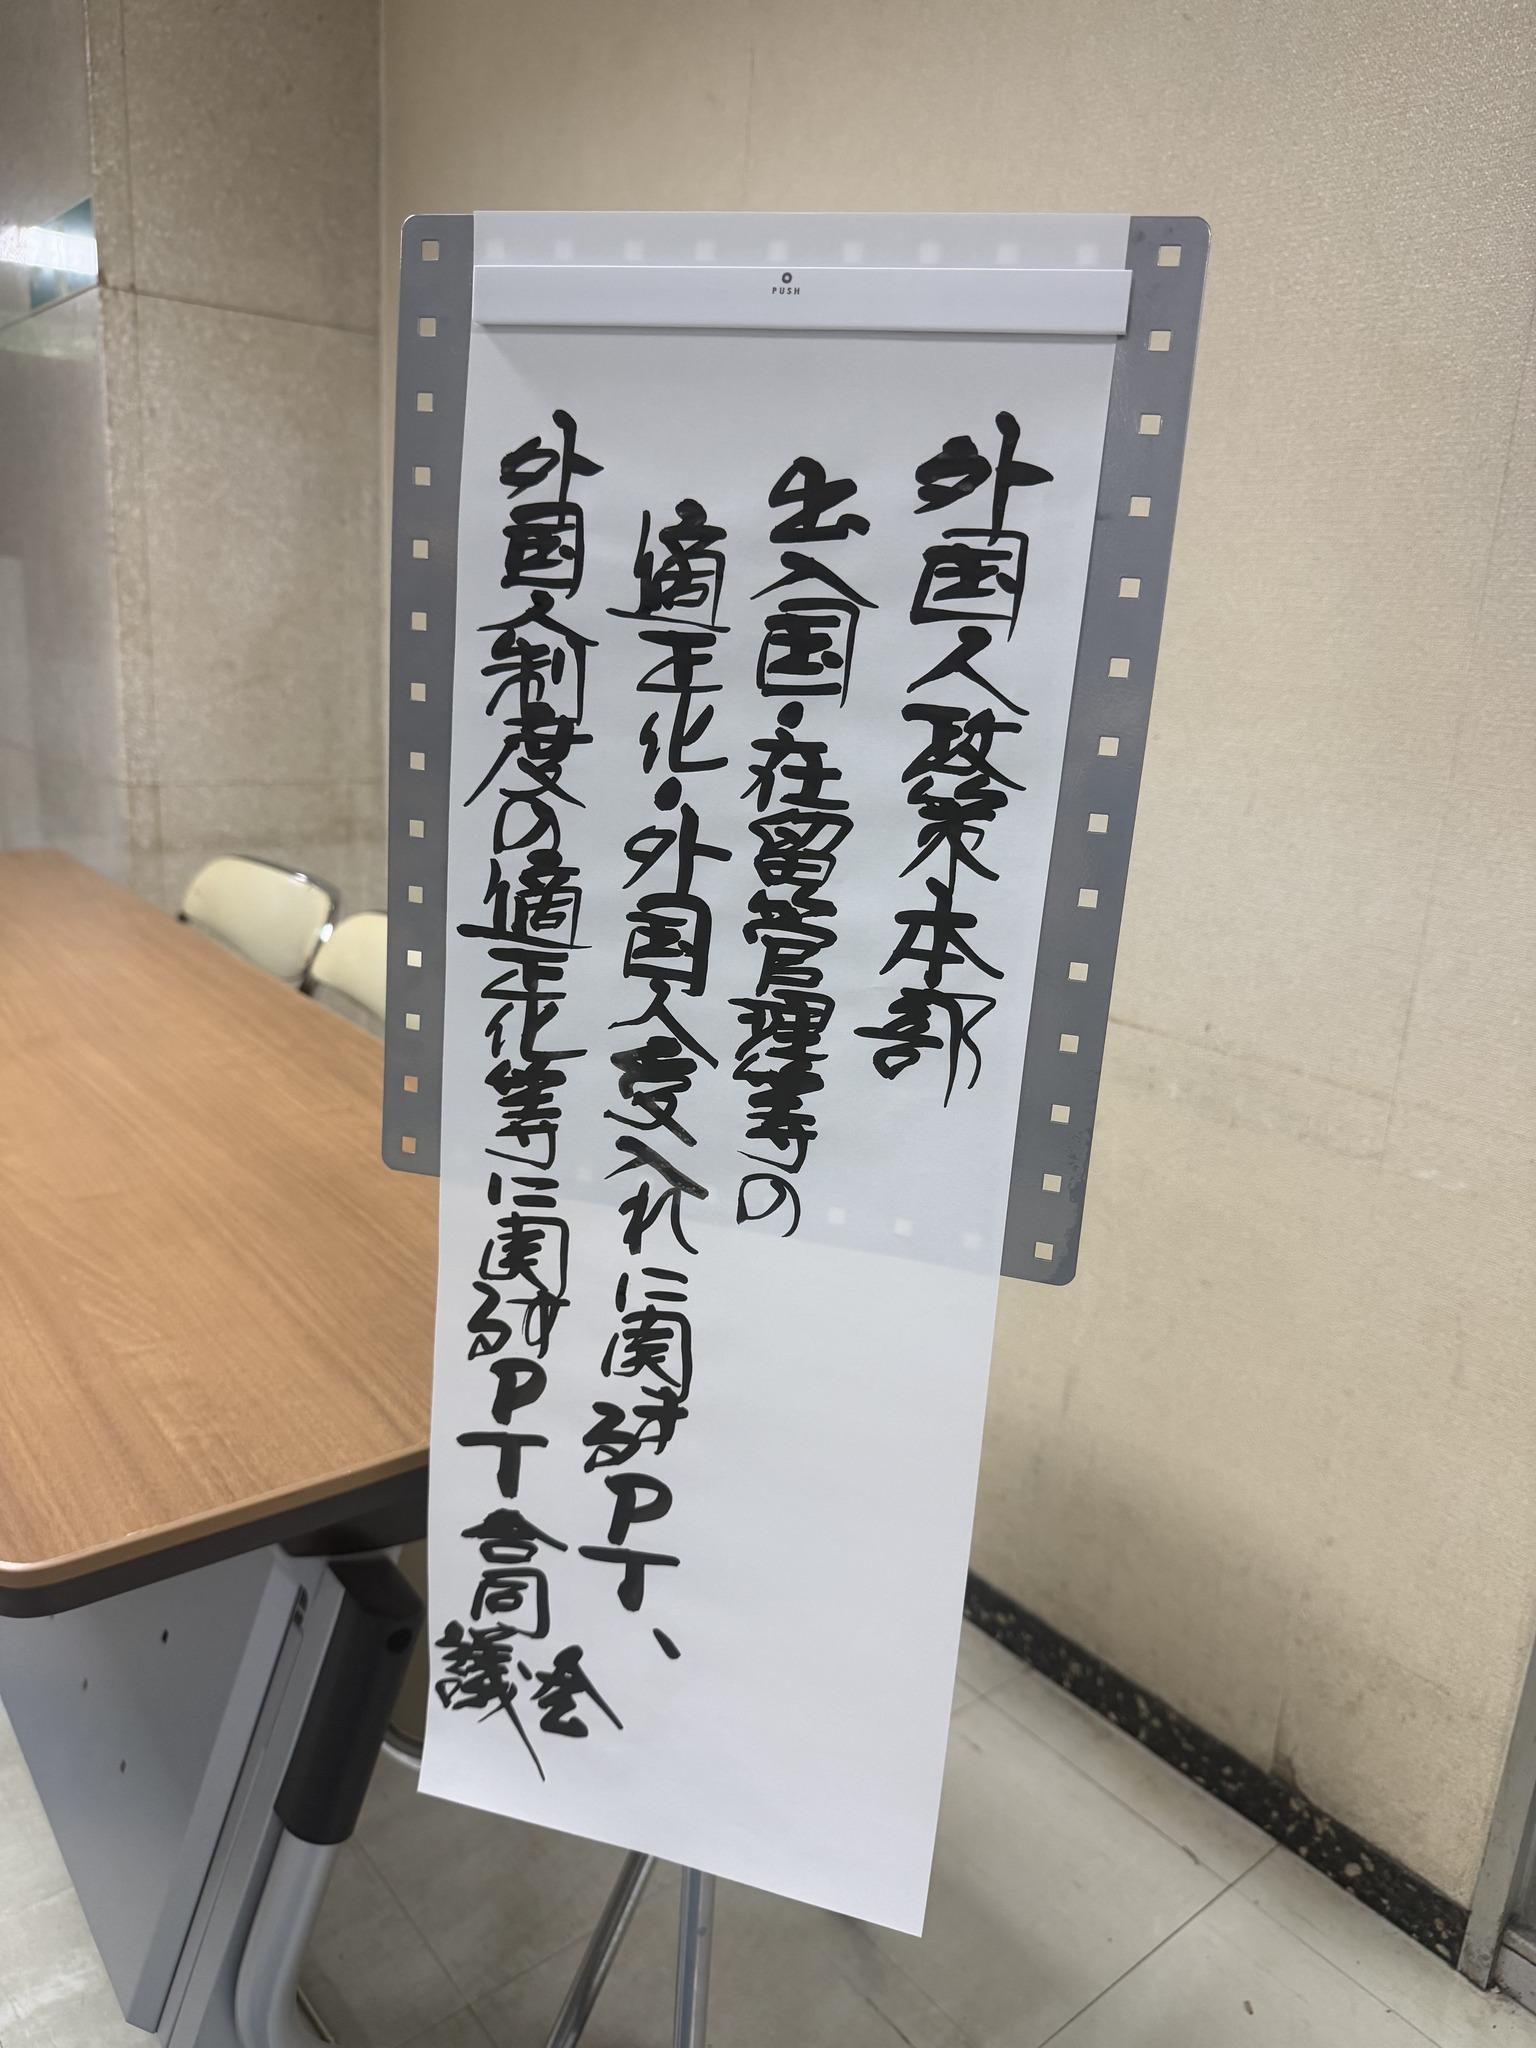 PUSH
外国人政策本部
出入国・在留管理等の
適正化・外国人受入れに関するPT、
外国人制度の適正化等に関するPT合同会議